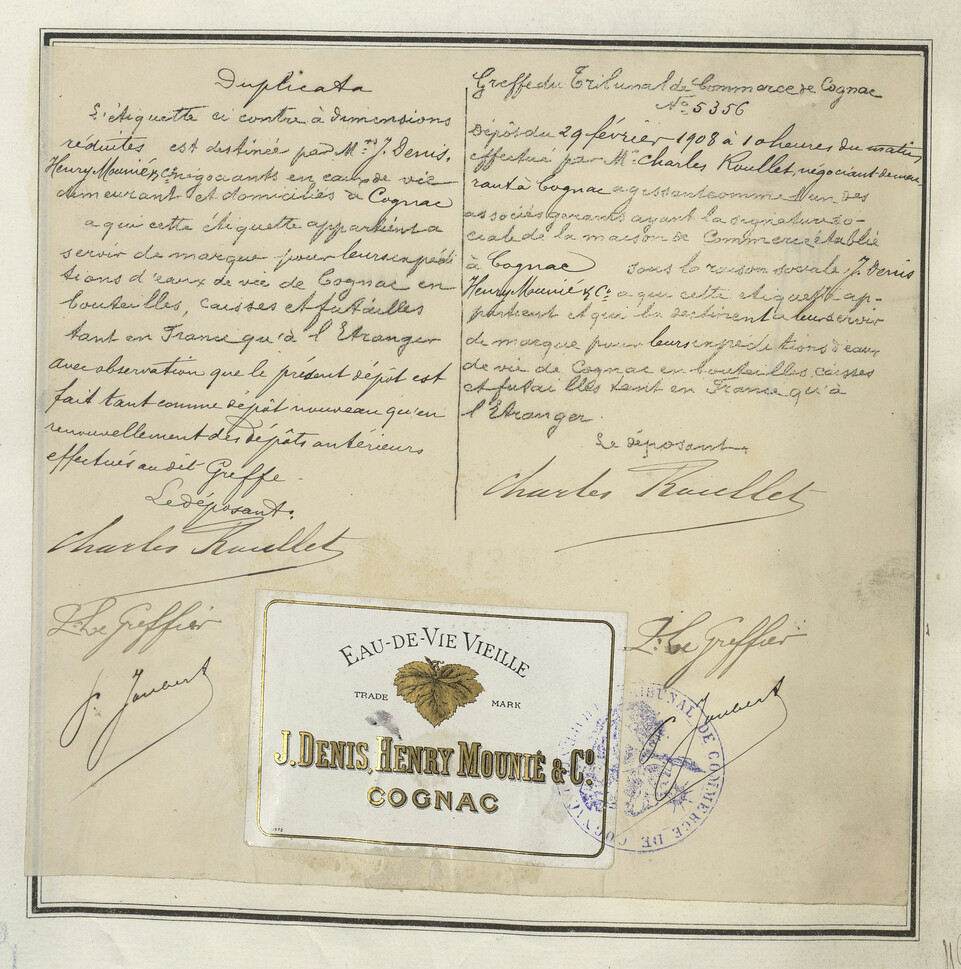 Duplicata
L'étiquette ci contre à dimensions
réduites est destinée par Mrs J. Denis,
Henry Mounié & Co négociants en eaux de vie
demeurant et domiciliés à Cognac
a qui cette étiquette appartient a
servir de marque pour leurs expédi
tions d'eaux de vie de Cognac en
bouteilles, caisses et futailles
tant en France qu'à l'Etranger
avec observation que le présent dépôt est
fait tant comme dépôt nouveau qu'en
renouvellement des dépôts antérieurs
effectués au dit Greffe.
Le déposant.
Charles Roullet
Pr. Le Greffier
Joubert
Greffe du Tribunal de Commerce de Cognac
No 5356
Dépôt du 29 février 1908 à 10 heures du matin
effectué par Mr Charles Roullet, négociant demeu-
rant à Cognac agissant comme l'un des
associés gérants ayant la signature so-
ciale de la maison de Commerce établie
à Cognac sous la raison sociale: J. Denis
Henry Mounié & Co a qui cette étiquette ap-
partient et qui la destinent a leur servir
de marque pour leurs expeditions d'eaux
de vie de Cognac en bouteilles, caisses
et futailles tant en France qu'à
l'Etranger.
Le déposant.
Charles Roullet
Pr. Le Greffier
Joubert
EAU-DE-VIE VIEILLE
TRADE MARK
J. DENIS, HENRY MOUNIÉ & CO.
COGNAC
TRIBUNAL DE COMMERCE DE COGNAC